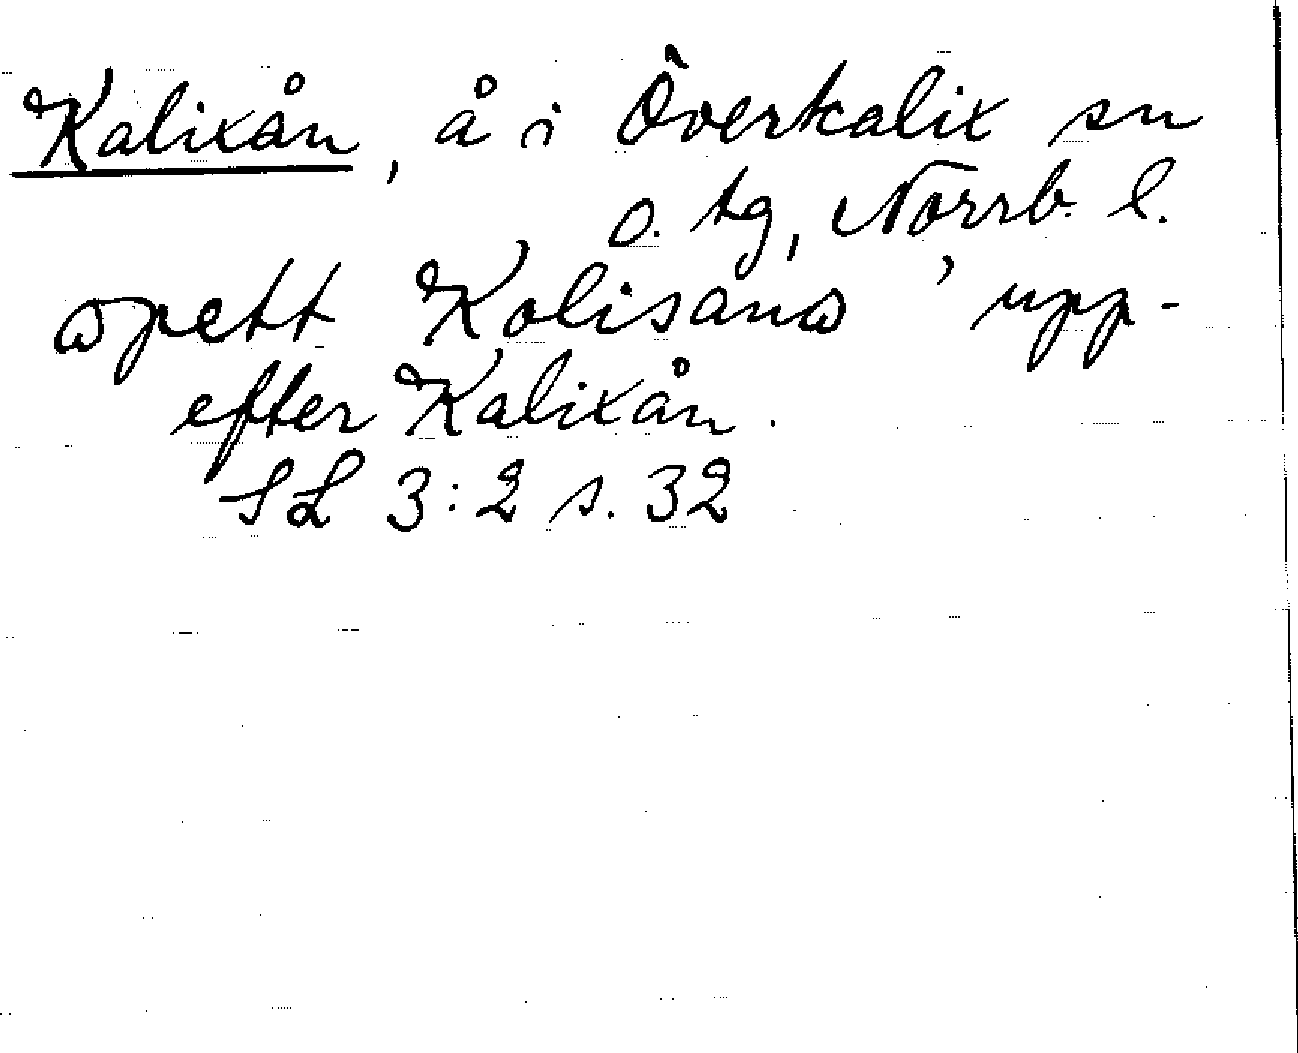 Kalixån, å i Överkalix sn
o. tg, Norrb. l.
ωpett Kolisanω ' upp-
efter Kalixån.
SL 3:2 s. 32